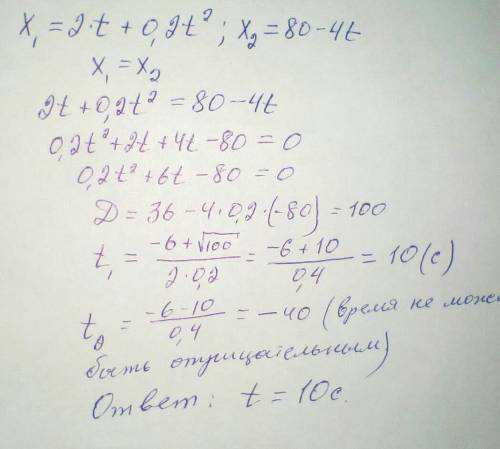 x₁ = 2·t + 0,2t² ; x₂ = 80 - 4t
x₁ = x₂
2t + 0,2t² = 80 - 4t
0,2t² + 2t + 4t - 80 = 0
0,2t² + 6t - 80 = 0
Д = 36 - 4·0,2·(-80) = 100
t₁ = (-6 + √100)/(2·0,2) = (-6 + 10)/0,4 = 10 (с)
t₂ = (-6 - 10)/0,4 = -40 (время не може
быть отрицательным)
Ответ: t = 10с.